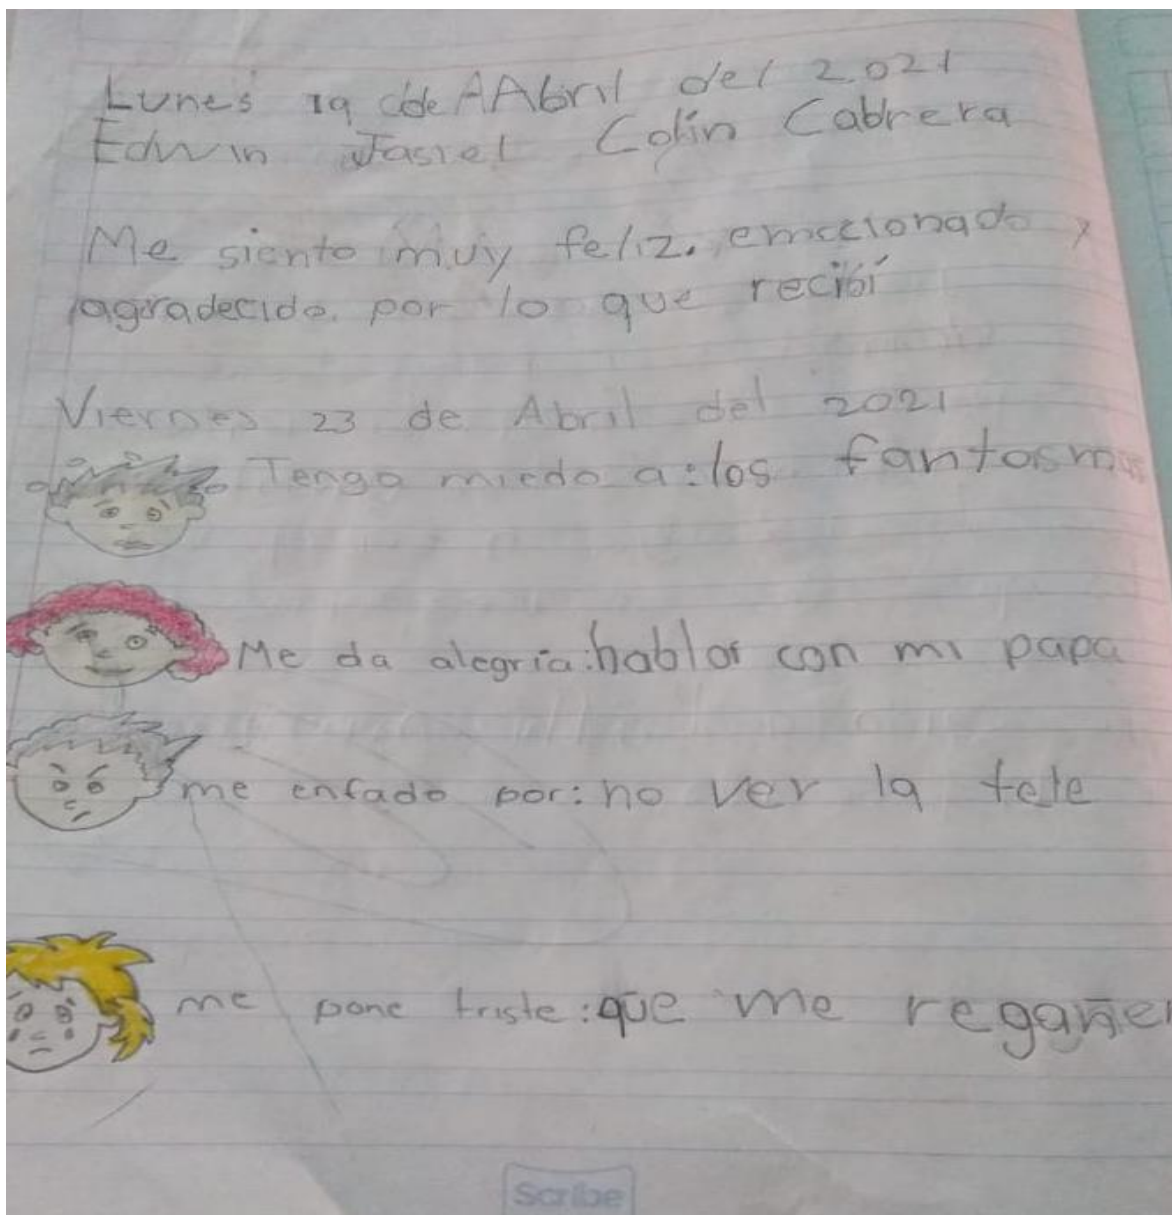 Lunes 19 de AAbril del 2.021
Edwin Jasiel Colín Cabrera
Me siento muy feliz. emocionado y
agradecido. por lo que recibí
Viernes 23 de Abril del 2021
Tengo miedo a: los fantasmas
Me da alegria: hablar con mi papa
me enfado por: no ver la tele
me pone triste: que me regañen
Scribe